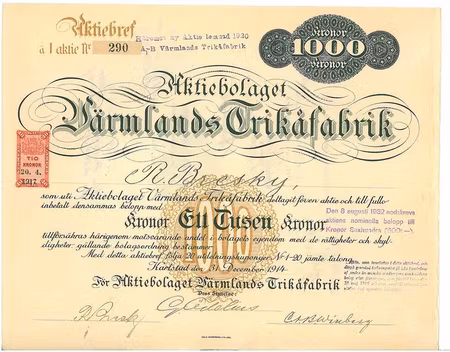 Aktiebref
à 1 aktie No 290
Härmed ny Aktie 1920
A-B Värmlands Trikåfabrik
Kronor
1000
Kronor
Aktiebolaget
Värmlands Trikåfabrik
TIO
KRONOR
20. 4.
1217
R. Bresky
som uti Aktiebolaget Värmlands Trikåfabrik deltagit för en aktie och till fullo
inbetalt densammas belopp med
Kronor Ett Tusen Kronor
1000
tillförsäkras härigenom motsvarande andel i bolagets egendom med de rättigheter och skyl-
digheter gällande bolagsordning bestämmer.
Den 8 augusti 1932 nedskrevs
aktiens nominella belopp till
Kronor
Med detta aktiebref följa 20 utdelningskuponger No 1-20 jämte talong.
Karlstad den 31 December 1914.
För Aktiebolaget Värmlands Trikåfabrik
Dess Styrelse:
R. Bresky
C. A. B. Winberg